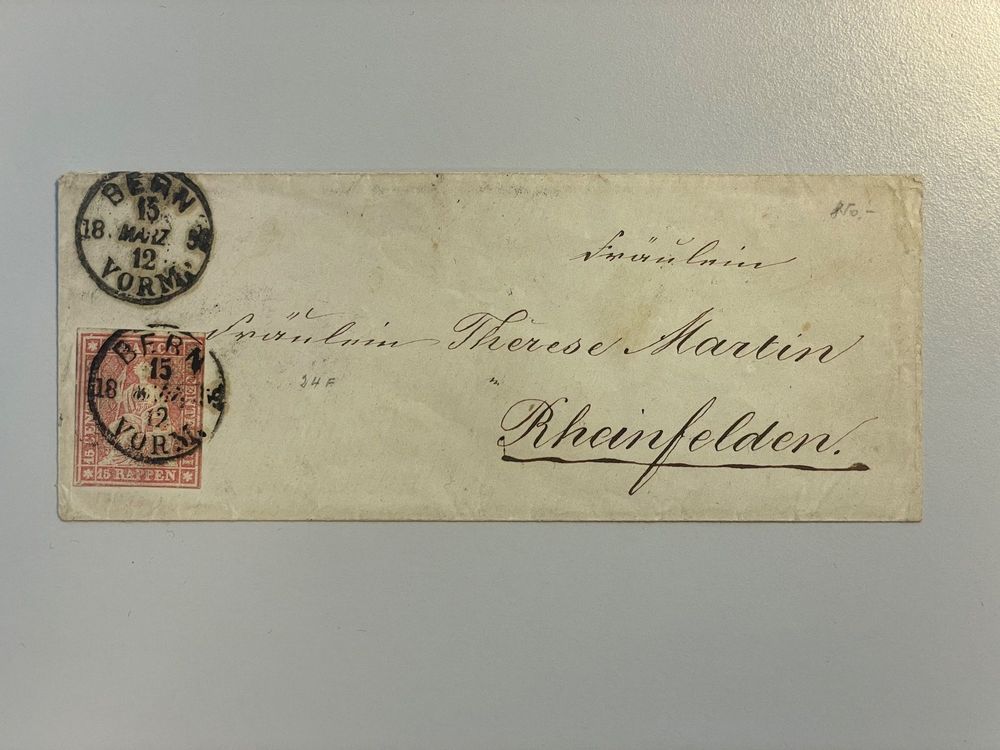 BERN
15
18 MÄRZ
12
VORM.
850.-
Fräulein
Fräulein Thérese Martin
Rheinfelden.
24F
BERN
15
18
12
VORM.
15 RAPPEN